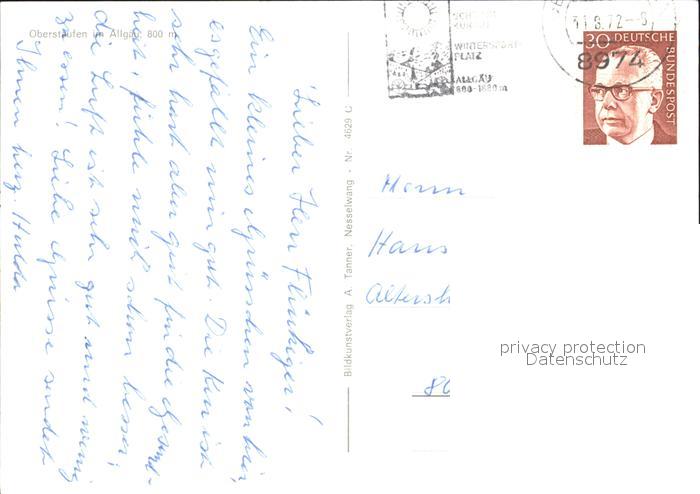 Oberstaufen im Allgäu, 800 m
Lieber Herr Flükiger!
Ein kleines Grüsschen von hier,
es gefällt mir gut. Die Kur ist
sehr hart aber gut für die Gesund-
heit, fühle mich schon besser,
die Luft ist sehr gut und wenig
z. essen! Liebe Grüsse sendet
Ihnen herz. Hulda
Bildkunstverlag A. Tanner, Nesselwang - Nr. 4629 C
WINTERSPORT-
PLATZ
ALLGÄU
800-1680 m
31.8.72-8
8974
30 DEUTSCHE
BUNDESPOST
Herrn
Hans
Altersh
privacy protection
Datenschutz
80